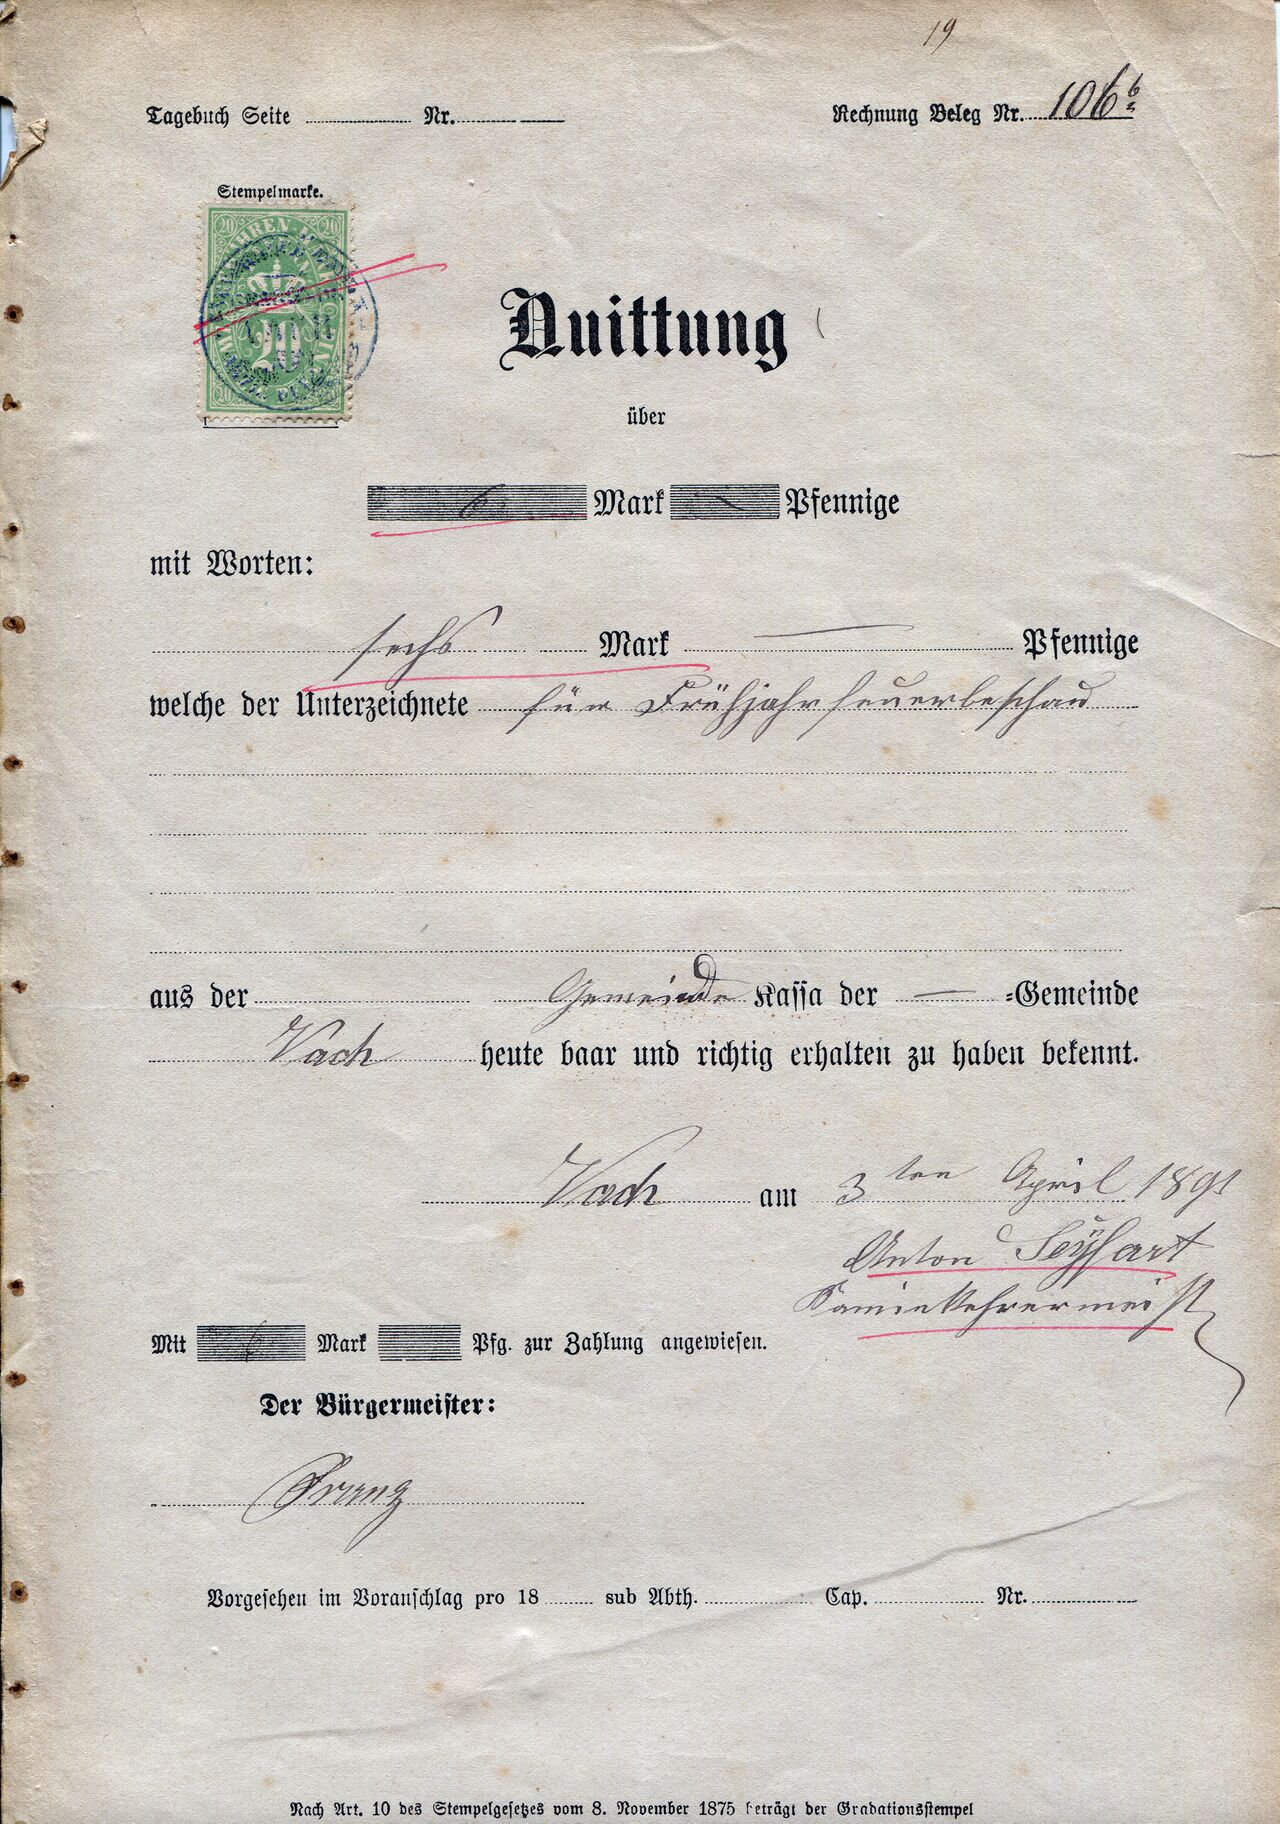 19
Tagebuch Seite Nr. Rechnung Beleg Nr. 106
Stempelmarke.
20 20
20
Quittung
über
6 Mark — Pfennige
mit Worten:
sechs Mark — Pfennige
welche der Unterzeichnete für Frühjahrfeuerbeschau
aus der Gemeinde Kassa der — =Gemeinde
Vach heute baar und richtig erhalten zu haben bekennt.
Vach am 3ten April 1891
Anton Seyfart
Kaminkehrermeist
Mit 6 Mark Pfg. zur Zahlung angewiesen.
Der Bürgermeister:
Franz
Vorgesehen im Voranschlag pro 18 sub Abth. Cap. Nr.
Nach Art. 10 des Stempelgesetzes vom 8. November 1875 beträgt der Gradationsstempel